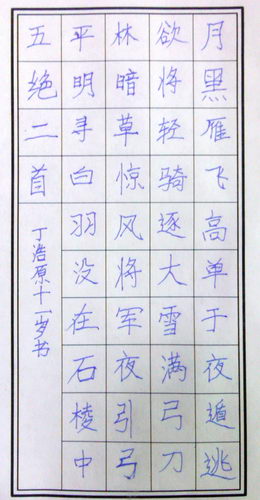 月黑雁飞高单于夜遁逃
欲将轻骑逐大雪满弓刀
林暗草惊风将军夜引弓
平明寻白羽没在石棱中
五绝二首
丁浩原十一岁书